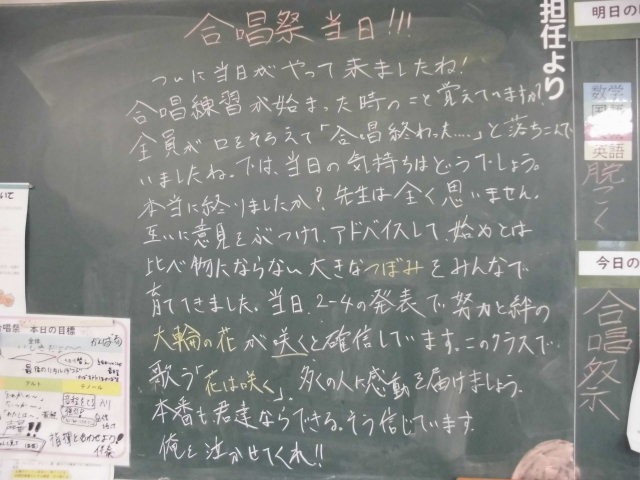 合唱祭 当日!!!
ついに当日がやって来ましたね!
合唱練習が始まった時のこと覚えていますか?
全員が口をそろえて「合唱終わった....」と落ちこんで
いましたね。では、当日の気持ちはどうでしょう。
本当に終りましたか?先生は全く思いません。
互いに意見をぶつけて、アドバイスして、始めとは
比べ物にならない大きなつぼみをみんなで
育ててきました。当日、2-4の発表で、努力と絆の
大輪の花が咲くと確信しています。このクラスで
歌う「花は咲く」、多くの人に感動を届けましょう。
本番も君達ならできる。そう信じています。
俺を泣かせてくれ!!
担任より
明日の
数学
国語
英語
脱
今日の
合唱祭
合唱祭 本日の目標
全体
アルト
テノール